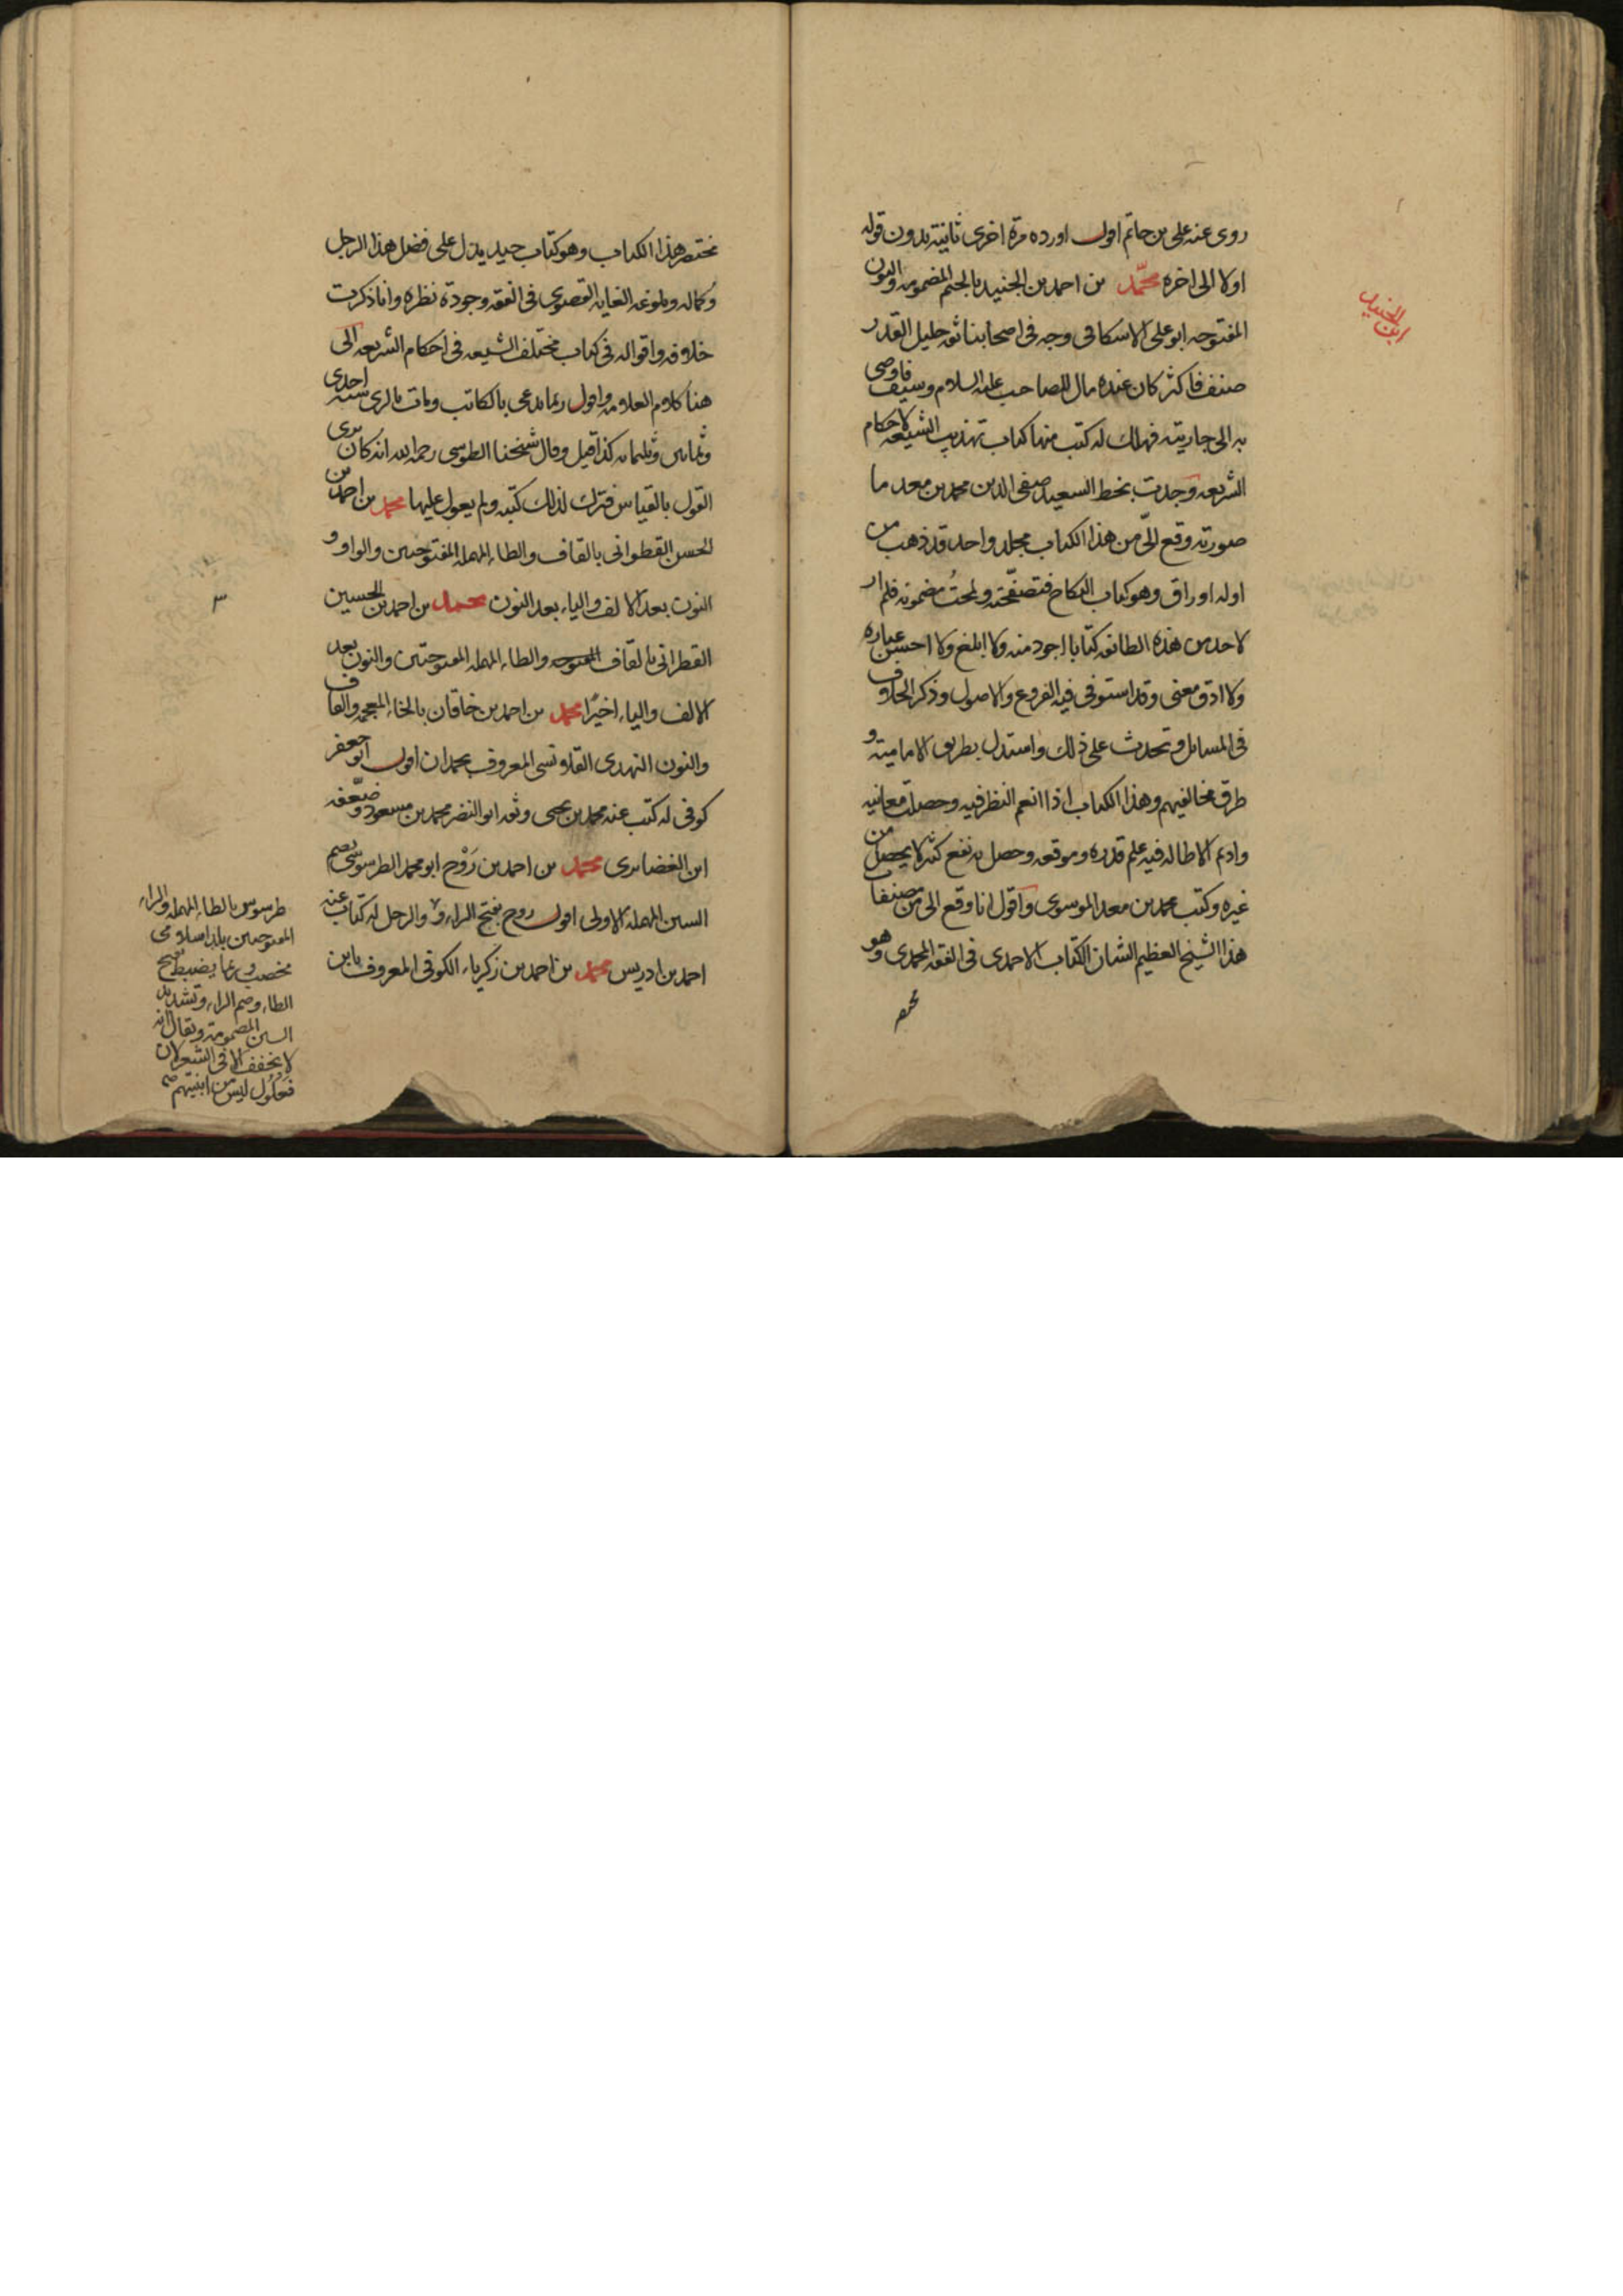 روى عنه على بن حاتم اقول اورده مرة اخرى ثانية بدون قوله
اولا الى اخره محمد بن احمد بن الجنيد بالجيم المضمومه والنون
المفتوحه ابو على الاسكافى وجه فى اصحابنا ثقه جليل القدر
صنف فاكثر كان عنده مال للصاحب عليه السلام وسيف فاوصى
به الى جاريته فهلك له كتب منها كتاب تهذيب الشيعه لاحكام
الشريعه وجدت بخط السعيد صفى الدين محمد بن معد ما
صورته وقع الىّ من هذا الكتاب مجلد واحد قد ذهب من
اوله اوراق وهو كتاب النكاح فتصفّحته ولمحتُ مضمونه فلم ار
لاحد من هذه الطائفه كتابا اجود منه ولا ابلغ ولا احسن عباره
ولا ادق معنى وقد استوفى فيه الفروع والاصول وذكر الخلاف
فى المسائل وتحدث على ذلك واستدل بطريق الاماميه و
طرق مخالفيهم وهذا الكتاب اذا انعم النظر فيه وحصلت معانيه
واديم الاطاله فيه علم قدره وموقعه وحصل به نفع كثير لا يحصل من
غيره وكتب محمد بن معد الموسوى واقول انا وقع الى من مصنفات
هذا الشيخ العظيم الشان الكتاب الاحمدى فى الفقه المحمدى وهو
ابن الجنيد
مختصر هذا الكتاب وهو كتاب جيد يدل على فضل هذا الرجل
وكماله وبلوغه الغايه القصوى فى الفقه وجودة نظره وانا ذكرت
خلافه واقواله فى كتاب مختلف الشيعه فى احكام الشريعه الى
هنا كلام العلامه واقول ربما يدعى بالكاتب ومات بالرى سنه احدى
وثمانين وثلثمائه كذا قيل وقال شيخنا الطوسى رحمه الله انه كان يرى
القول بالقياس فترك لذلك كتبه ولم يعول عليها محمد بن احمد بن
الحسن القطوانى بالقاف والطاء المهمله المفتوحتين والواو و
النون بعد الالف والياء بعد النون محمد بن احمد بن الحسين
القطرانى بالقاف المفتوحه والطاء المهمله المفتوحتين والنون بعد
الالف والياء اخيرًا محمد بن احمد بن خاقان بالخاء المعجمه والقاف
والنون النهدى القلانسى المعروف بحمدان اقول ابو جعفر
كوفى له كتب عنه محمد بن يحيى وثقه ابو النضر محمد بن مسعود وضعّفه
ابن الغضائرى محمد بن احمد بن رَوْح ابو محمد الطرسوسى بضم
السين المهمله الاولى اقول روح بفتح الراء والرجل له كتاب عنه
احمد بن ادريس محمد بن احمد بن زكرياء الكوفى المعروف بابن
٣
طرسوس بالطاء المهمله والراء
المفتوحتين بلد اسلامى
مخصب وربما يضبط بفتح
الطاء وضم الراء وتشديد
السين المضمومة ويقال انه
لا يخفف الا فى الشعر لان
فَعَلُول ليس من ابنيتهم